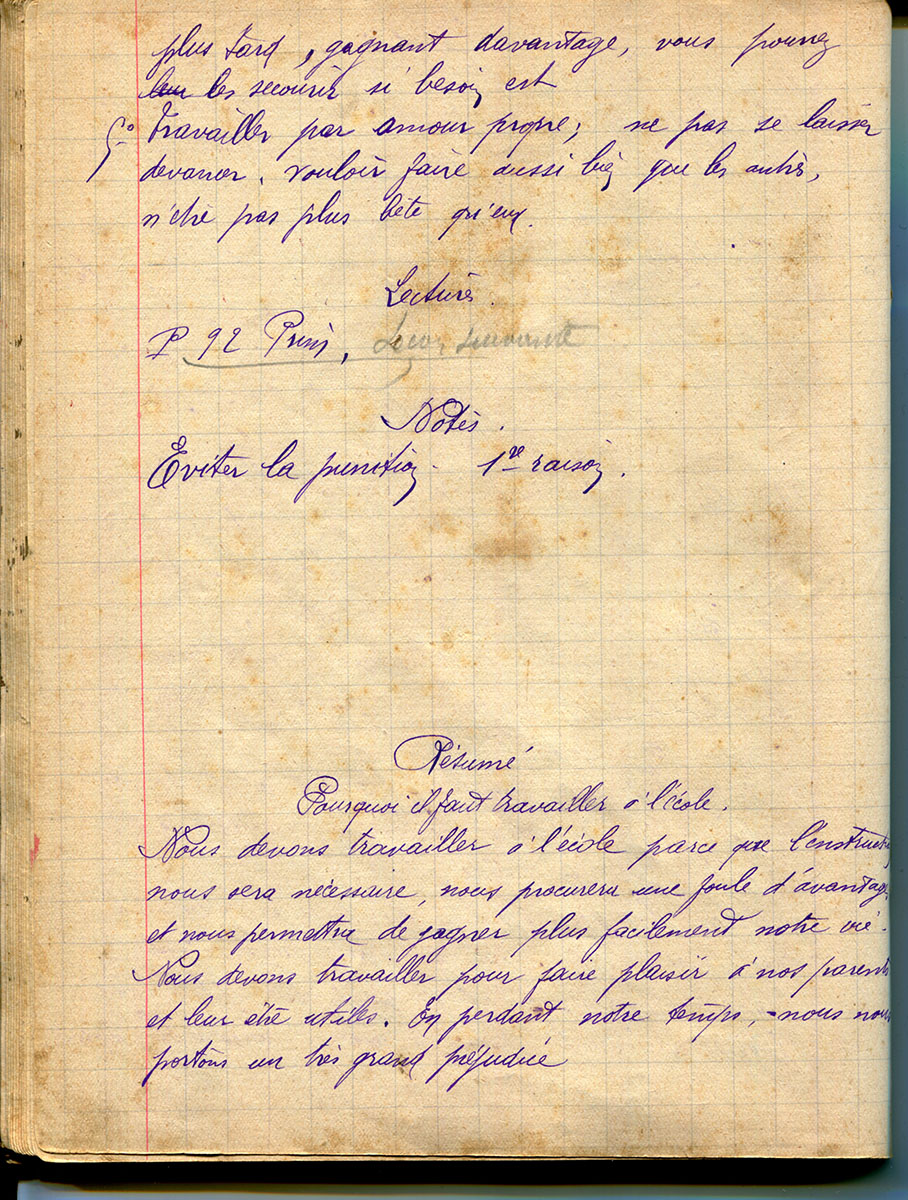 plus tard, gagnant davantage, vous pourrez
les secourir si besoin est
5° Travailler par amour propre; ne pas se laisser
devancer. vouloir faire aussi bien que les autres,
n'être pas plus bête qu'eux.
Lectures.
P 92 Prims, Leçon suivante
Notes.
Eviter la punition. 1re raison.
Résumé
Pourquoi il faut travailler à l'école.
Nous devons travailler à l'école parce que l'instruction
nous sera nécessaire, nous procurera une foule d'avantages
et nous permettra de gagner plus facilement notre vie.
Nous devons travailler pour faire plaisir à nos parents
et leur être utiles. En perdant notre temps, nous nous
portons un très grand préjudice